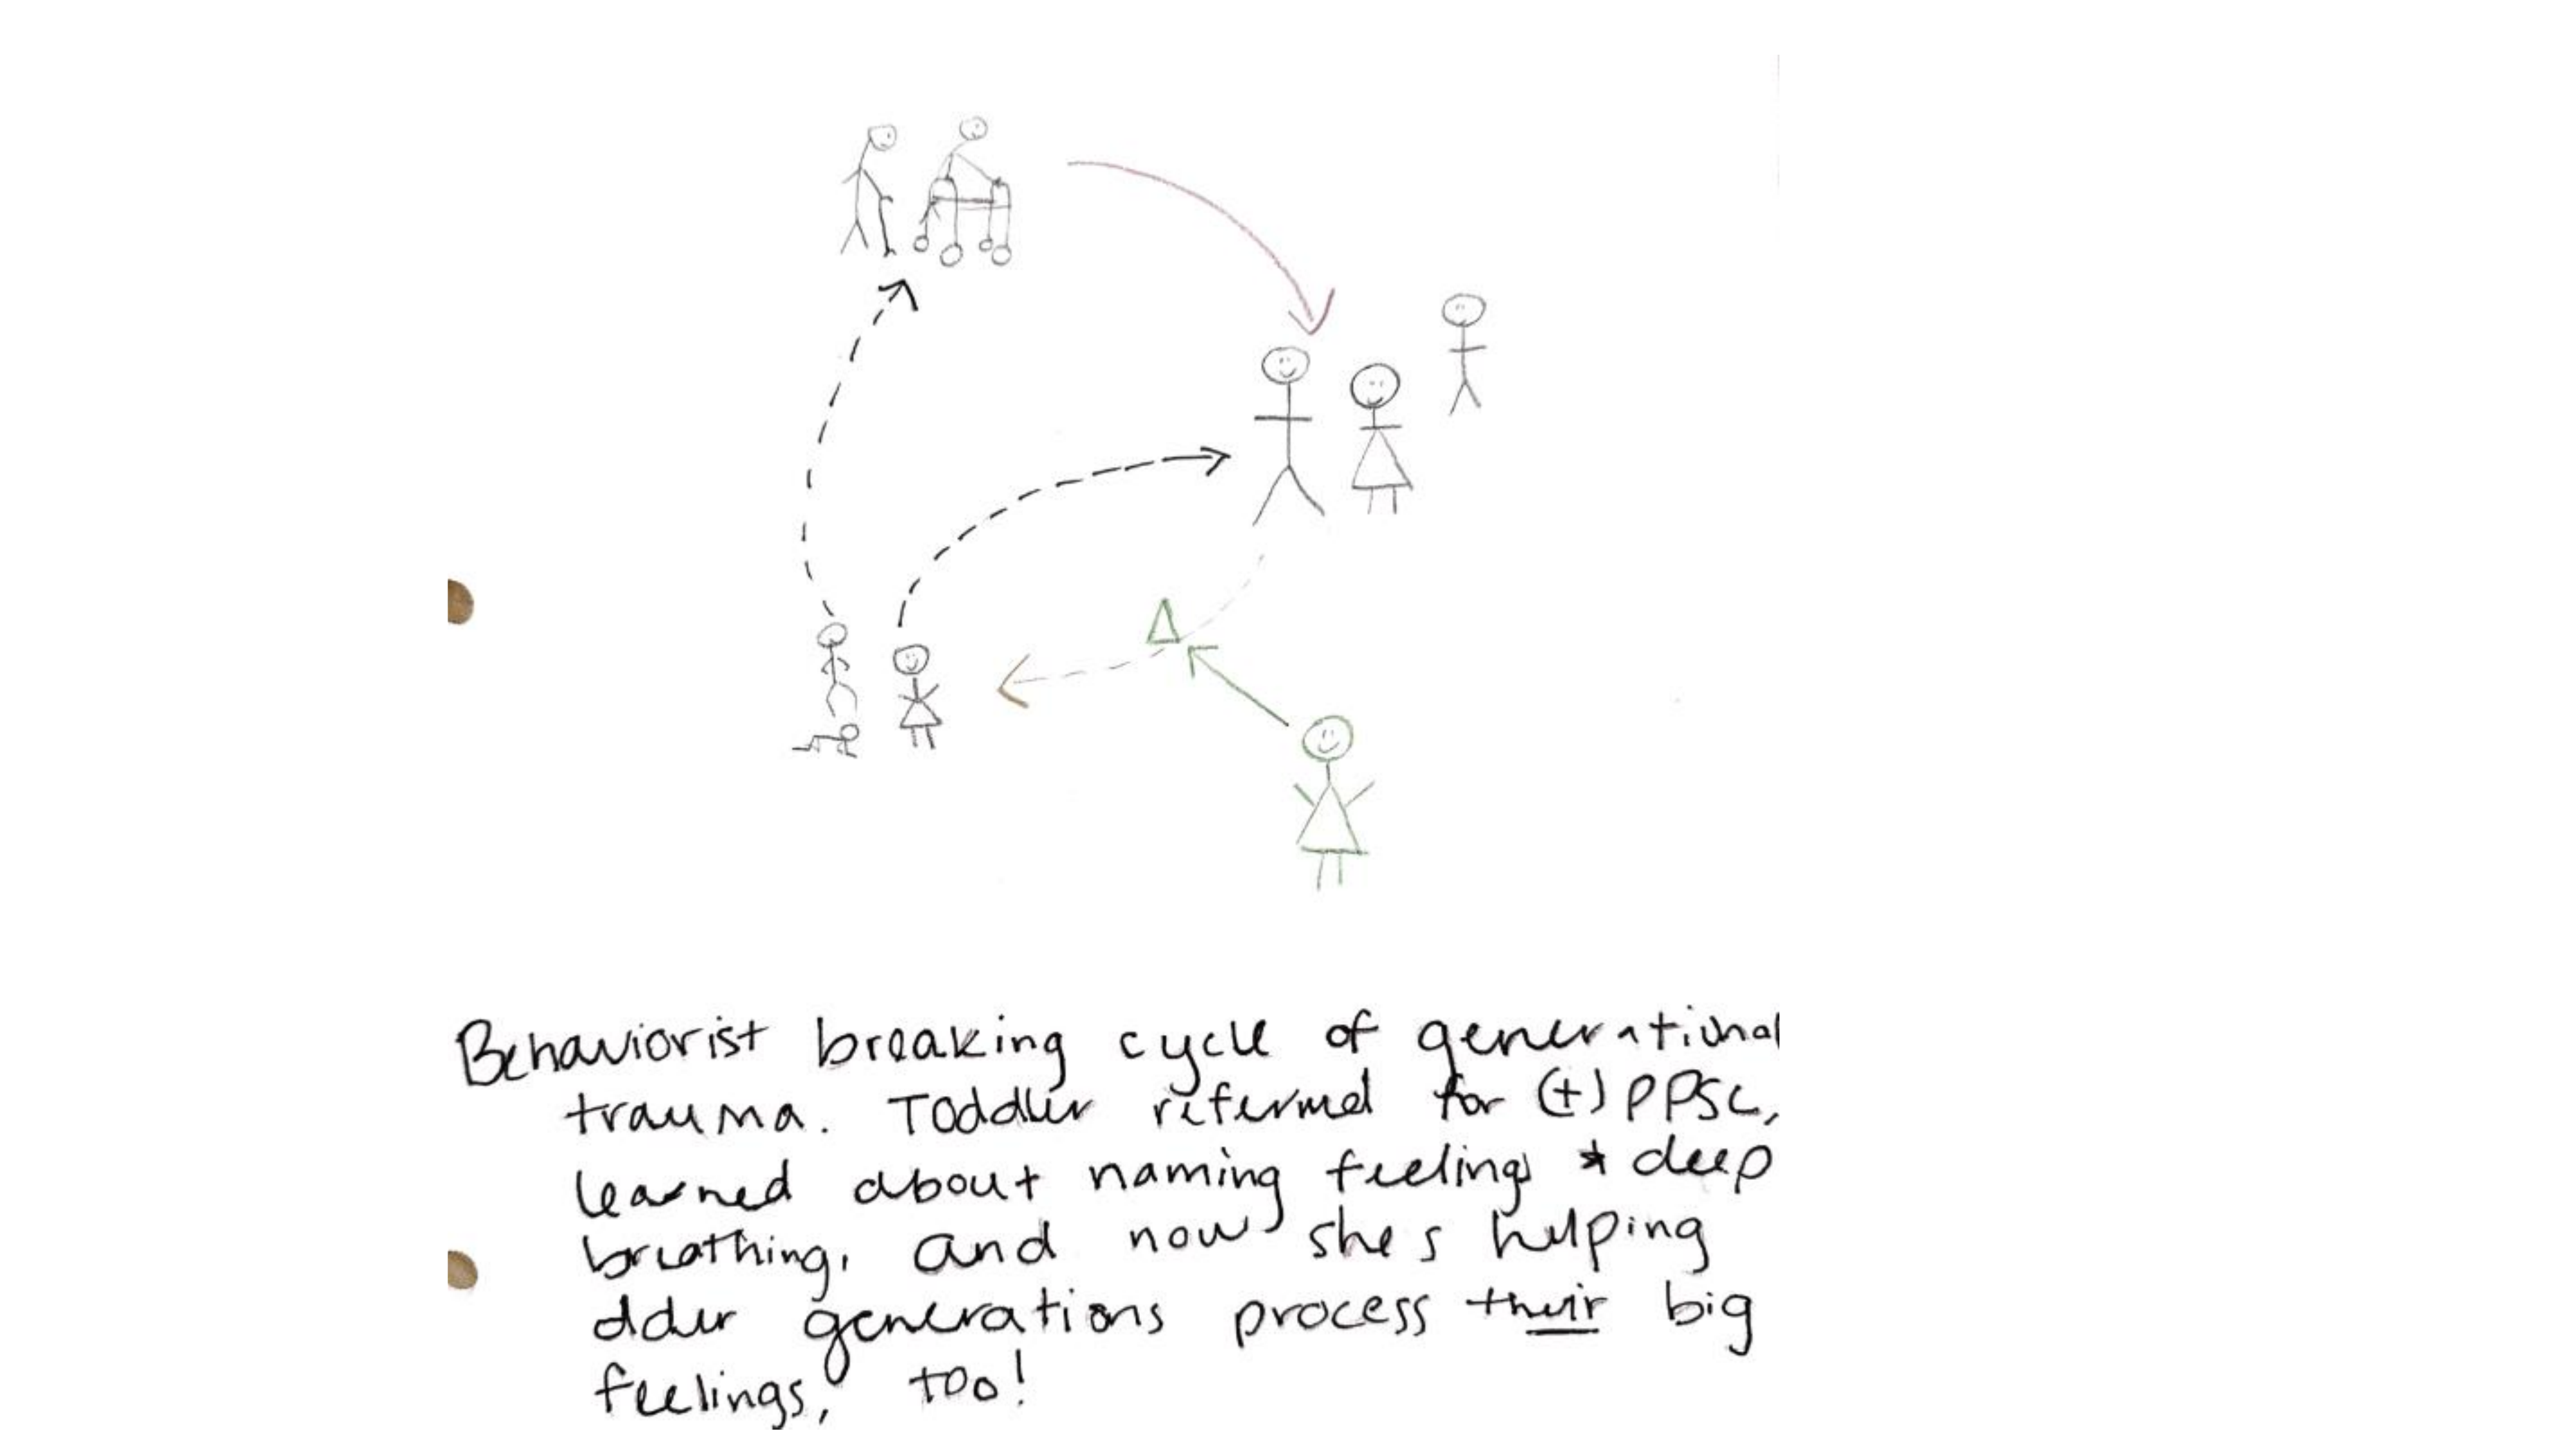 Δ
Behaviorist breaking cycle of generational
trauma. Toddler referred for (+) PPSC,
learned about naming feelings & deep
breathing, and now she's helping
older generations process their big
feelings, too!